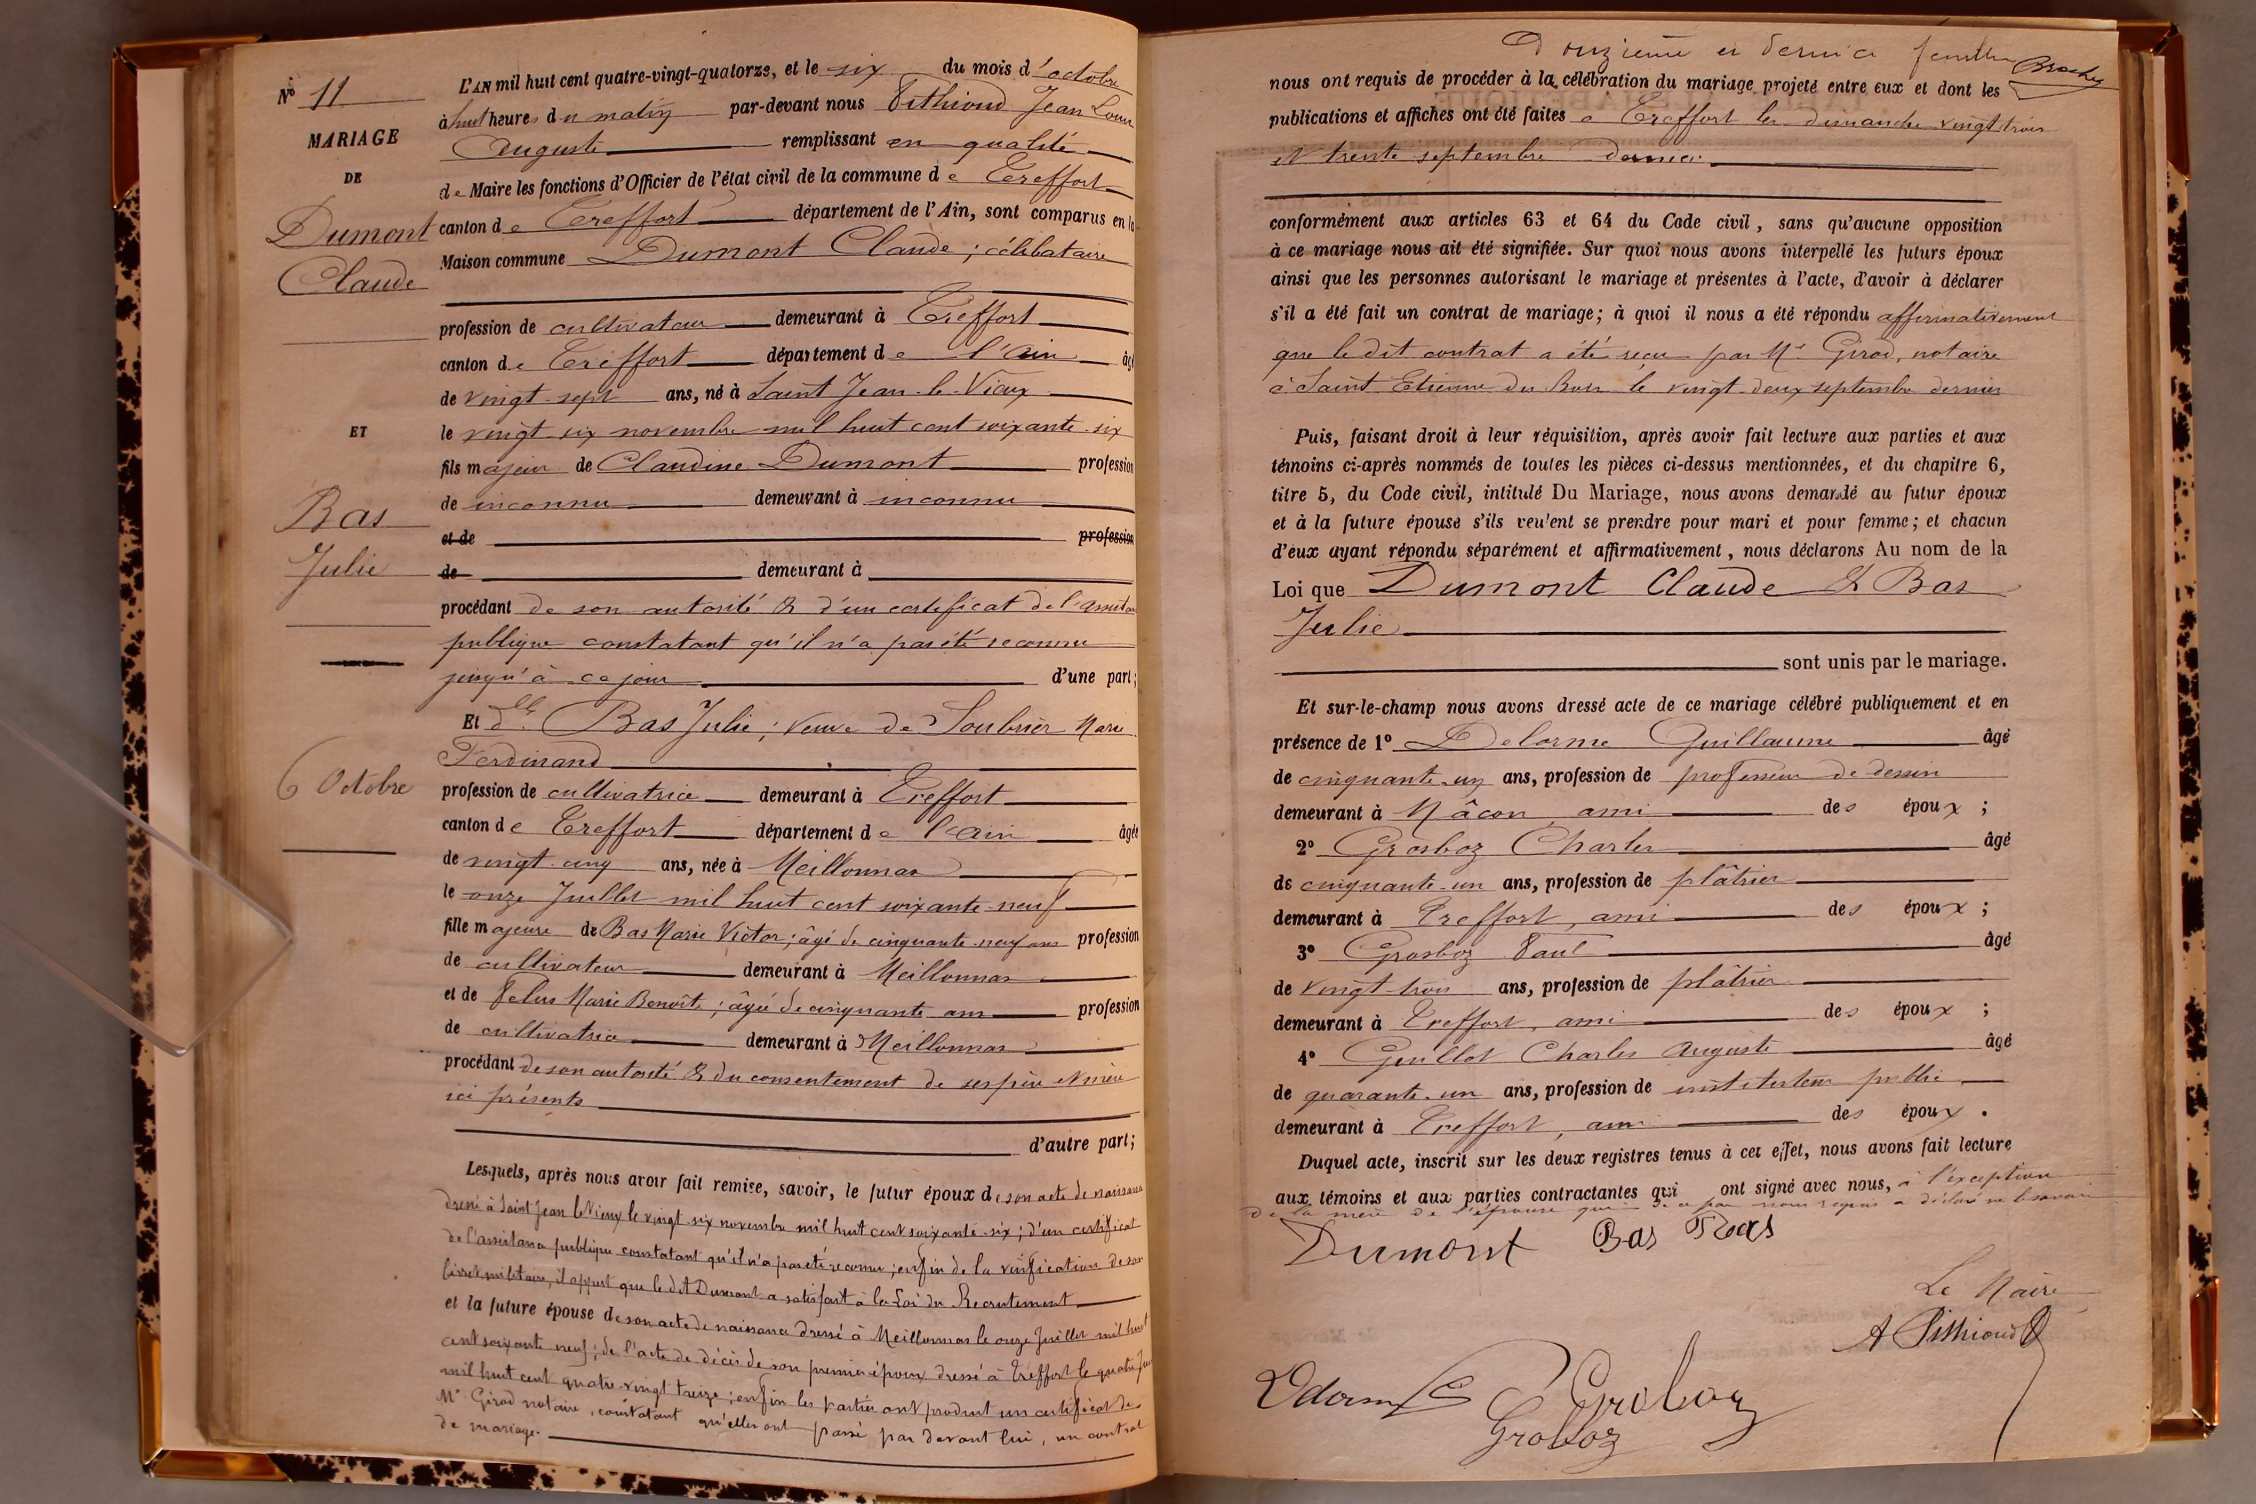 N° 11
MARIAGE
DE
Dumont
Claude
ET
Bas
Julie
6 Octobre
L'AN mil huit cent quatre-vingt-quatorze, et le six du mois d'octobre
à huit heures du matin par-devant nous Pithioud Jean Louis
Auguste remplissant en qualité
de Maire les fonctions d'Officier de l'état civil de la commune de Treffort
canton de Treffort département de l'Ain, sont comparus en la
Maison commune Dumont Claude ; célibataire
profession de cultivateur demeurant à Treffort
canton de Treffort département de l'Ain âgé
de vingt-sept ans, né à Saint Jean-le-Vieux
le vingt-six novembre mil huit cent soixante-six
fils majeur de Claudine Dumont profession
de inconnu demeurant à inconnu
et de profession
de demeurant à
procédant de son autorité & d'un certificat de l'assistance
publique constatant qu'il n'a pas été reconnu
jusqu'à ce jour d'une part ;
Et dlle Bas Julie ; veuve de Soubrier Marie
Ferdinand
profession de cultivatrice demeurant à Treffort
canton de Treffort département de l'Ain âgée
de vingt-cinq ans, née à Meillonnas
le onze Juillet mil huit cent soixante-neuf
fille majeure de Bas Marie Victor ; âgé de cinquante-neuf ans profession
de cultivateur demeurant à Meillonnas
et de Marie Benoîte ; âgée de cinquante ans profession
de cultivatrice demeurant à Meillonnas
procédant de son autorité & du consentement de ses père et mère
ici présents
d'autre part ;
Lesquels, après nous avoir fait remise, savoir, le futur époux de son acte de naissance
dressé à Saint Jean le Vieux le vingt-six novembre mil huit cent soixante-six ; d'un certificat
de l'assistance publique constatant qu'il n'a pas été reconnu ; enfin de la vérification de son
livret militaire, il appert que le dit Dumont a satisfait à la Loi du Recrutement
et la future épouse de son acte de naissance dressé à Meillonnas le onze Juillet mil huit
cent soixante neuf ; de l'acte de décès de son premier époux dressé à Treffort le quatre
mil huit cent quatre-vingt treize ; enfin les parties ont produit un certificat de
Me Girod notaire, constatant qu'elles ont passé par devant lui, un contrat
de mariage.
Douzième et dernier feuillet
nous ont requis de procéder à la célébration du mariage projeté entre eux et dont les
publications et affiches ont été faites à Treffort les dimanche vingt trois
et trente septembre dernier
conformément aux articles 63 et 64 du Code civil, sans qu'aucune opposition
à ce mariage nous ait été signifiée. Sur quoi nous avons interpellé les futurs époux
ainsi que les personnes autorisant le mariage et présentes à l'acte, d'avoir à déclarer
s'il a été fait un contrat de mariage ; à quoi il nous a été répondu affirmativement
que le dit contrat a été reçu par Me Girod, notaire
à Saint Etienne du Bois le vingt-deux septembre dernier
Puis, faisant droit à leur réquisition, après avoir fait lecture aux parties et aux
témoins ci-après nommés de toutes les pièces ci-dessus mentionnées, et du chapitre 6,
titre 5, du Code civil, intitulé Du Mariage, nous avons demandé au futur époux
et à la future épouse s'ils veulent se prendre pour mari et pour femme ; et chacun
d'eux ayant répondu séparément et affirmativement, nous déclarons Au nom de la
Loi que Dumont Claude & Bas
Julie
sont unis par le mariage.
Et sur-le-champ nous avons dressé acte de ce mariage célébré publiquement et en
présence de 1° Delorme Guillaume âgé
de cinquante-un ans, profession de professeur de dessin
demeurant à Mâcon, ami des époux ;
2° Grosboz Charles âgé
de cinquante-un ans, profession de plâtrier
demeurant à Treffort, ami des époux ;
3° Grosboz Paul âgé
de vingt-trois ans, profession de plâtrier
demeurant à Treffort, ami des époux ;
4° Guillot Charles Auguste âgé
de quarante-un ans, profession de instituteur public
demeurant à Treffort, ami des époux.
Duquel acte, inscrit sur les deux registres tenus à cet effet, nous avons fait lecture
aux témoins et aux parties contractantes qui ont signé avec nous, à l'exception
de la mère de l'épouse qui de ce par nous requis a déclaré ne le savoir
Dumont Bas Bas
Le Maire
A Pithioud
Delorme Groboz
Groboz